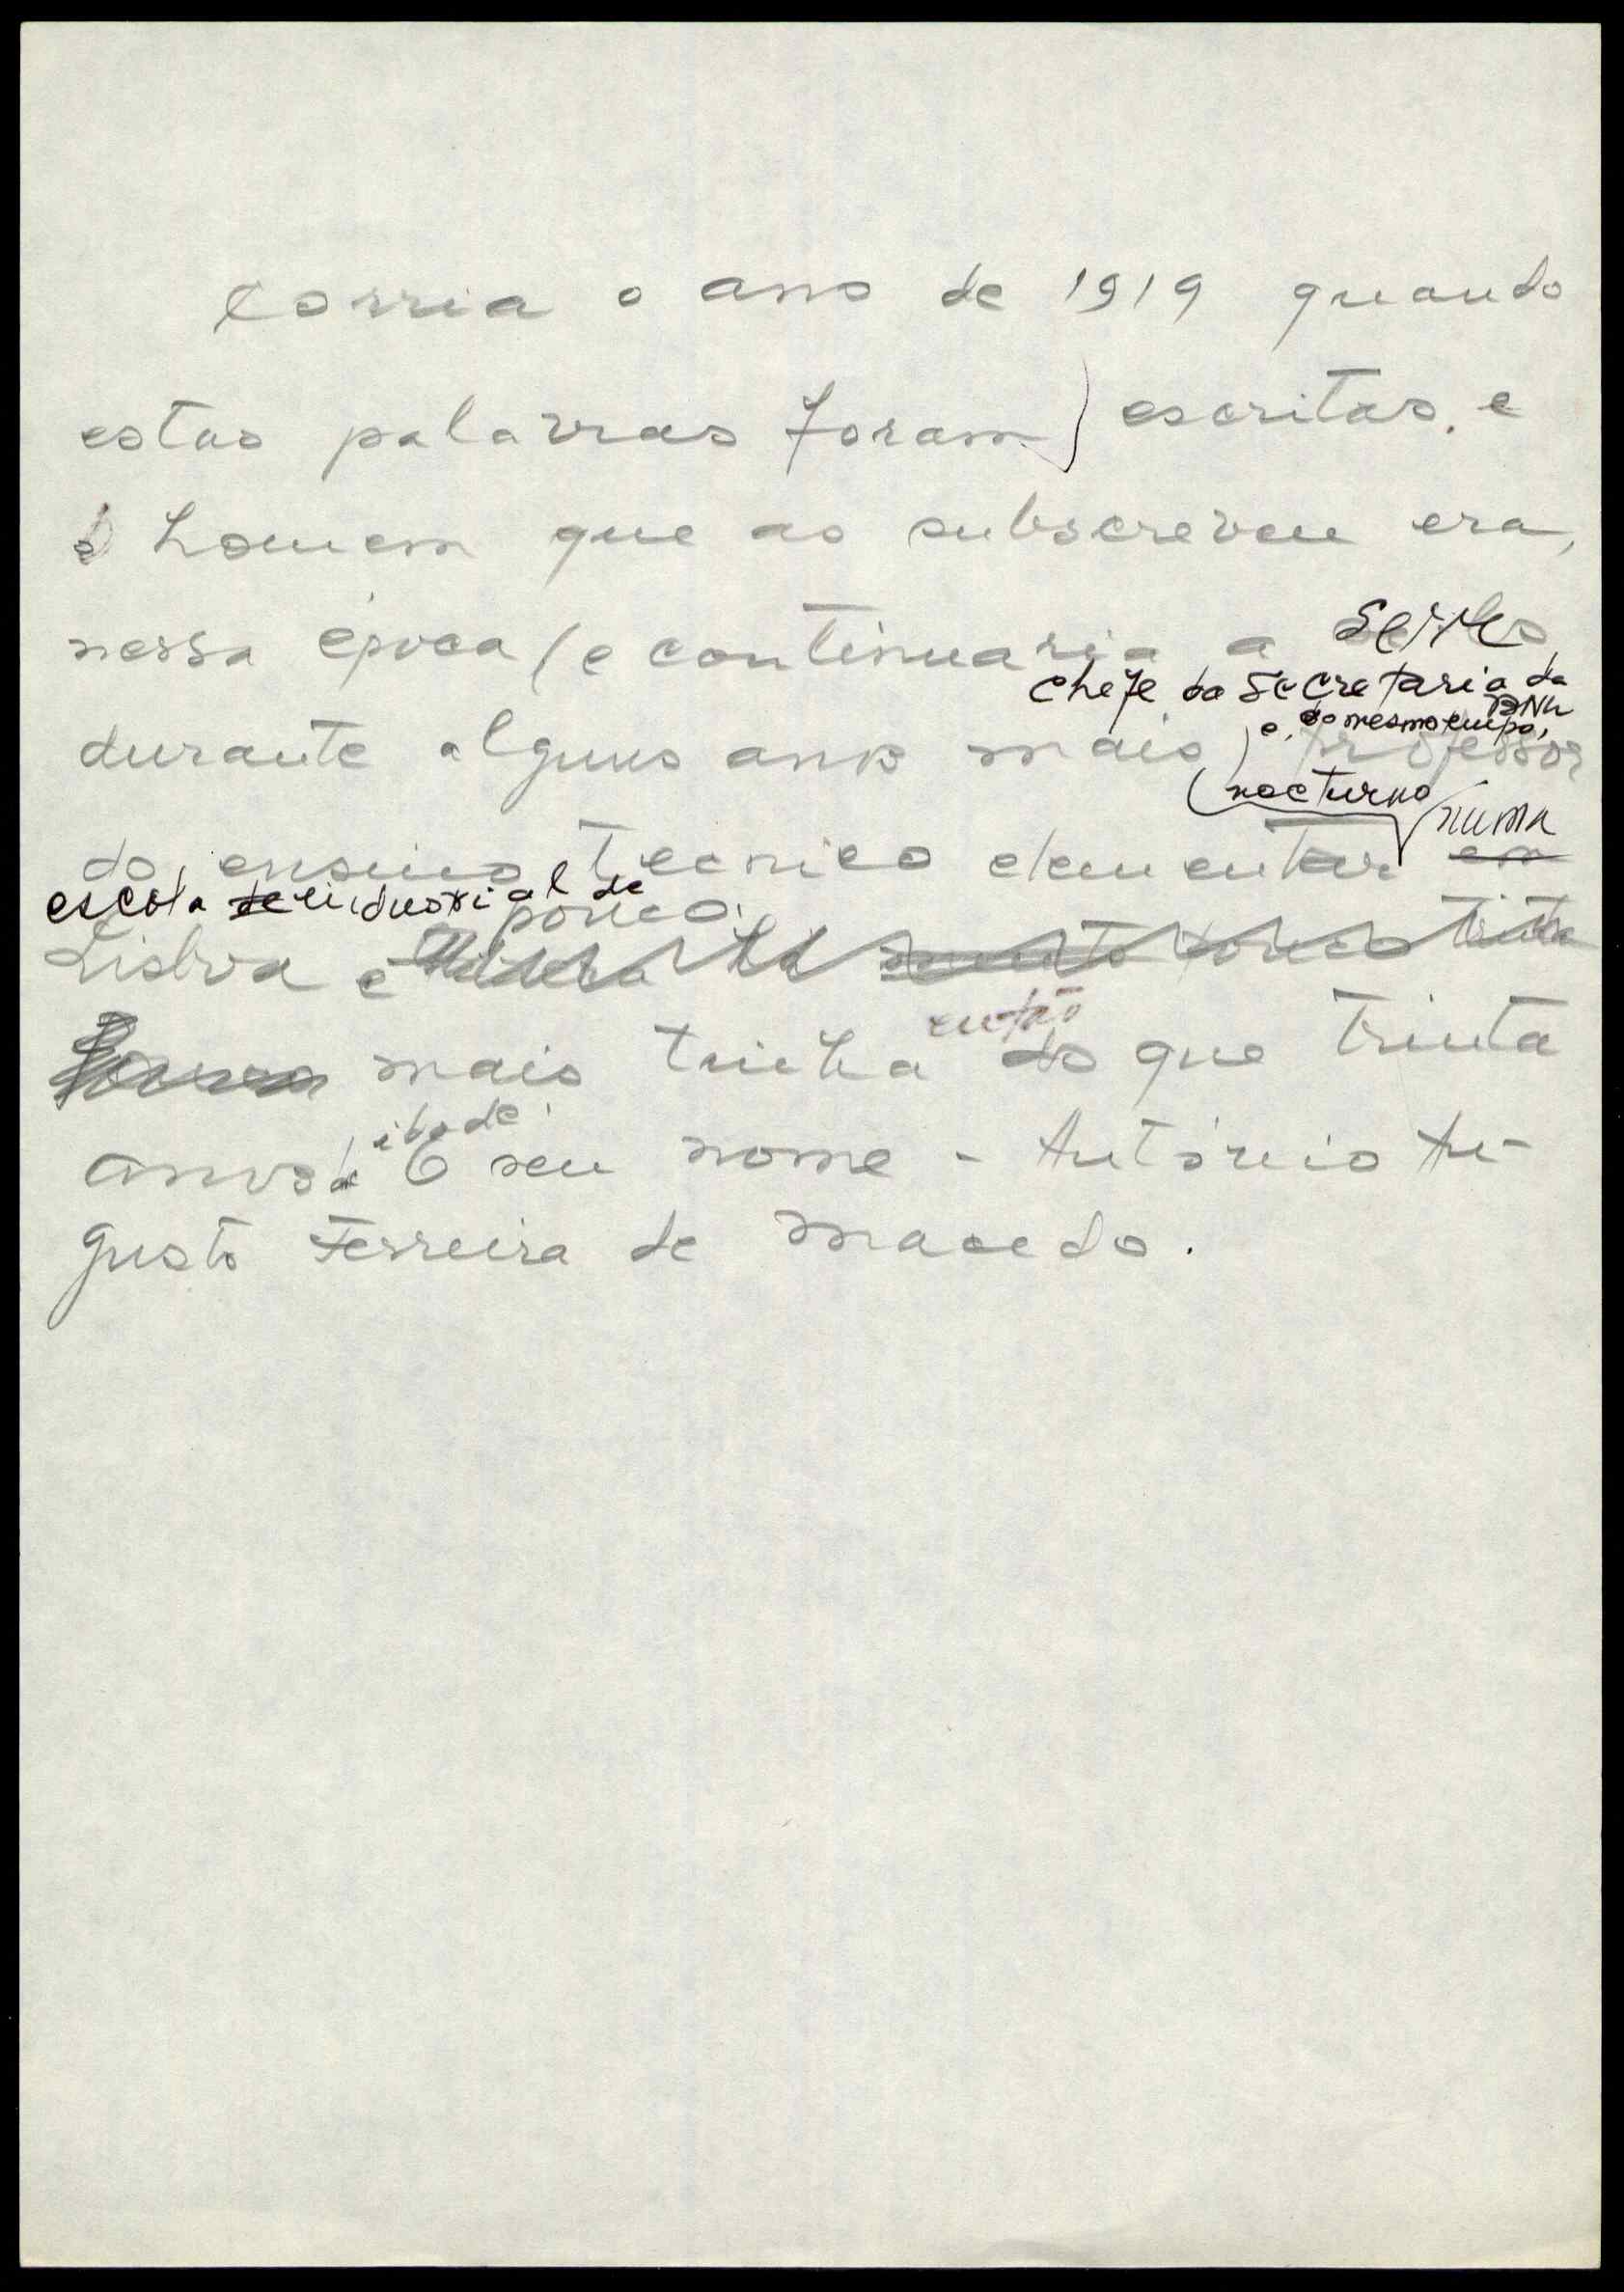 Corria o ano de 1919 quando
estas palavras foram) escritas. e
o homem que as subscreveu era,
nessa época (e continuaria a sê-lo
chefe da Secretaria da
BNL
e, ao mesmo tempo,
durante alguns anos mais) professor
(nocturno
numa
do ensino tecnico elementar em
escola de industrial de
pouco
Lisboa e
trinta
então
mais tinha do que trinta
idade
anos de O seu nome - António Au-
gusto Ferreira de Macedo.